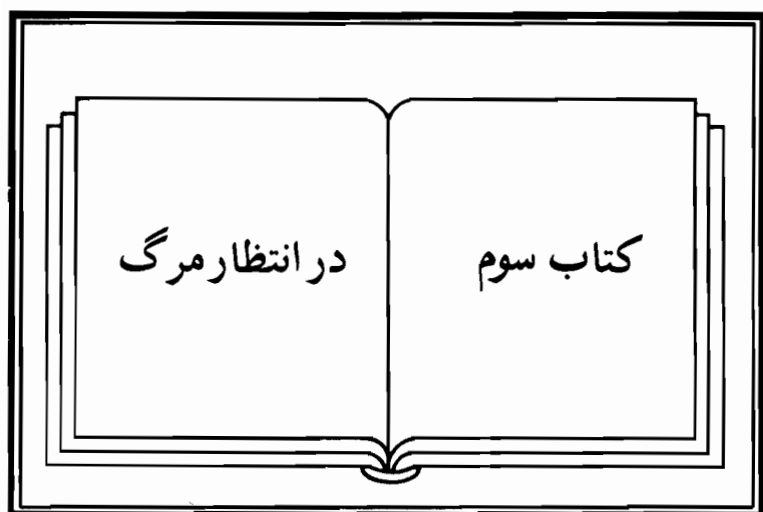 کتاب سوم
در انتظار مرگ